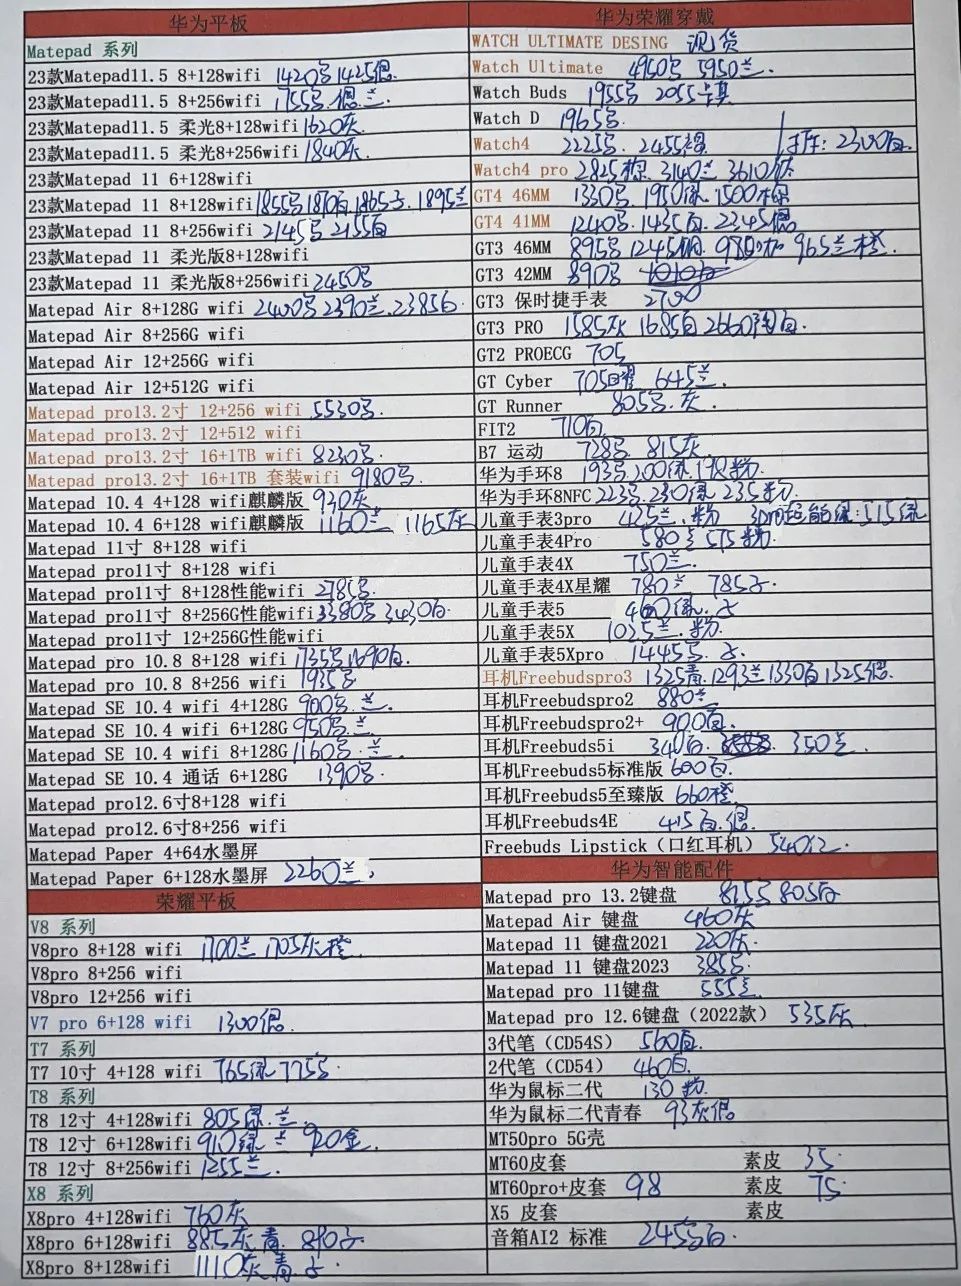 华为平板
Matepad 系列
23款Matepad11.5 8+128wifi 1420号1425银.
23款Matepad11.5 8+256wifi 1755号 银兰.
23款Matepad11.5 柔光8+128wifi 1620灰
23款Matepad11.5 柔光8+256wifi 1840灰
23款Matepad 11 6+128wifi
23款Matepad 11 8+128wifi 1855号1870白1865子.1895兰
23款Matepad 11 8+256wifi 2145号 2155白
23款Matepad 11 柔光版8+128wifi
23款Matepad 11 柔光版8+256wifi 2450号
Matepad Air 8+128G wifi 2400号2390兰.2385白
Matepad Air 8+256G wifi
Matepad Air 12+256G wifi
Matepad Air 12+512G wifi
Matepad pro13.2寸 12+256 wifi 5530号.
Matepad pro13.2寸 12+512 wifi
Matepad pro13.2寸 16+1TB wifi 8230号
Matepad pro13.2寸 16+1TB 套装wifi 9180号
Matepad 10.4 4+128 wifi麒麟版 930灰
Matepad 10.4 6+128 wifi麒麟版 1160兰 1165灰
Matepad 11寸 8+128 wifi
Matepad pro11寸 8+128 wifi
Matepad pro11寸 8+128性能wifi 2785号.
Matepad pro11寸 8+256G性能wifi 3380号 3430白.
Matepad pro11寸 12+256G性能wifi
Matepad pro 10.8 8+128 wifi 1735号1690白.
Matepad pro 10.8 8+256 wifi 1935号
Matepad SE 10.4 wifi 4+128G 900号.兰
Matepad SE 10.4 wifi 6+128G 950号.兰
Matepad SE 10.4 wifi 8+128G 1160号.兰.
Matepad SE 10.4 通话 6+128G 1390号
Matepad pro12.6寸8+128 wifi
Matepad pro12.6寸8+256 wifi
Matepad Paper 4+64水墨屏
Matepad Paper 6+128水墨屏 2260兰.
荣耀平板
V8 系列
V8pro 8+128 wifi 1700兰 1705灰橙
V8pro 8+256 wifi
V8pro 12+256 wifi
V7 pro 6+128 wifi 1300银.
T7 系列
T7 10寸 4+128 wifi 765绿 775号
T8 系列
T8 12寸 4+128wifi 805绿.兰
T8 12寸 6+128wifi 910绿 兰 920金.
T8 12寸 8+256wifi 1255兰.
X8 系列
X8pro 4+128wifi 760灰
X8pro 6+128wifi 885灰 青. 890子
X8pro 8+128wifi 1110灰 青 子
华为荣耀穿戴
WATCH ULTIMATE DESING 现货
Watch Ultimate 4950号 5950兰.
Watch Buds 1955号 2055
Watch D 1965号.
Watch4 2225号. 2455
Watch4 pro 2825棕. 3140兰 3610
GT4 46MM 1330号.1950绿.1500棕
GT4 41MM 1240号.1435白.2345银
GT3 46MM 895号1245 965兰橙.
GT3 42MM 890号
GT3 保时捷手表 2700
GT3 PRO 1585灰 1685白2660陶白.
GT2 PROECG 705
GT Cyber 705 645兰.
GT Runner 805号.灰.
FIT2 710白
B7 运动 728号 815灰
华为手环8 193号.200绿. 粉.
华为手环8NFC 223号.230绿 235粉.
儿童手表3pro 425兰.粉 超能绿:515绿
儿童手表4Pro 580兰 575粉.
儿童手表4X 750兰.
儿童手表4X星耀 780兰 785子.
儿童手表5 460绿.子
儿童手表5X 1035兰.粉.
儿童手表5Xpro 1445号.子.
耳机Freebudspro3 1325青.1293兰1330白1325银.
耳机Freebudspro2 880兰
耳机Freebudspro2+ 900白.
耳机Freebuds5i 340白. 350兰.
耳机Freebuds5标准版 600白.
耳机Freebuds5至臻版 660橙.
耳机Freebuds4E 415白.银.
Freebuds Lipstick（口红耳机） 540红.
华为智能配件
Matepad pro 13.2键盘 815号 805白
Matepad Air 键盘 460灰
Matepad 11 键盘2021 220灰.
Matepad 11 键盘2023 385号.
Matepad pro 11键盘 555兰.
Matepad pro 12.6键盘（2022款） 535灰.
3代笔（CD54S） 560白.
2代笔（CD54） 460白.
华为鼠标二代 130粉.
华为鼠标二代青春 93灰银
MT50pro 5G壳
MT60皮套 素皮 35.
MT60pro+皮套 98 素皮 75.
X5 皮套 素皮
音箱AI2 标准 245号白.